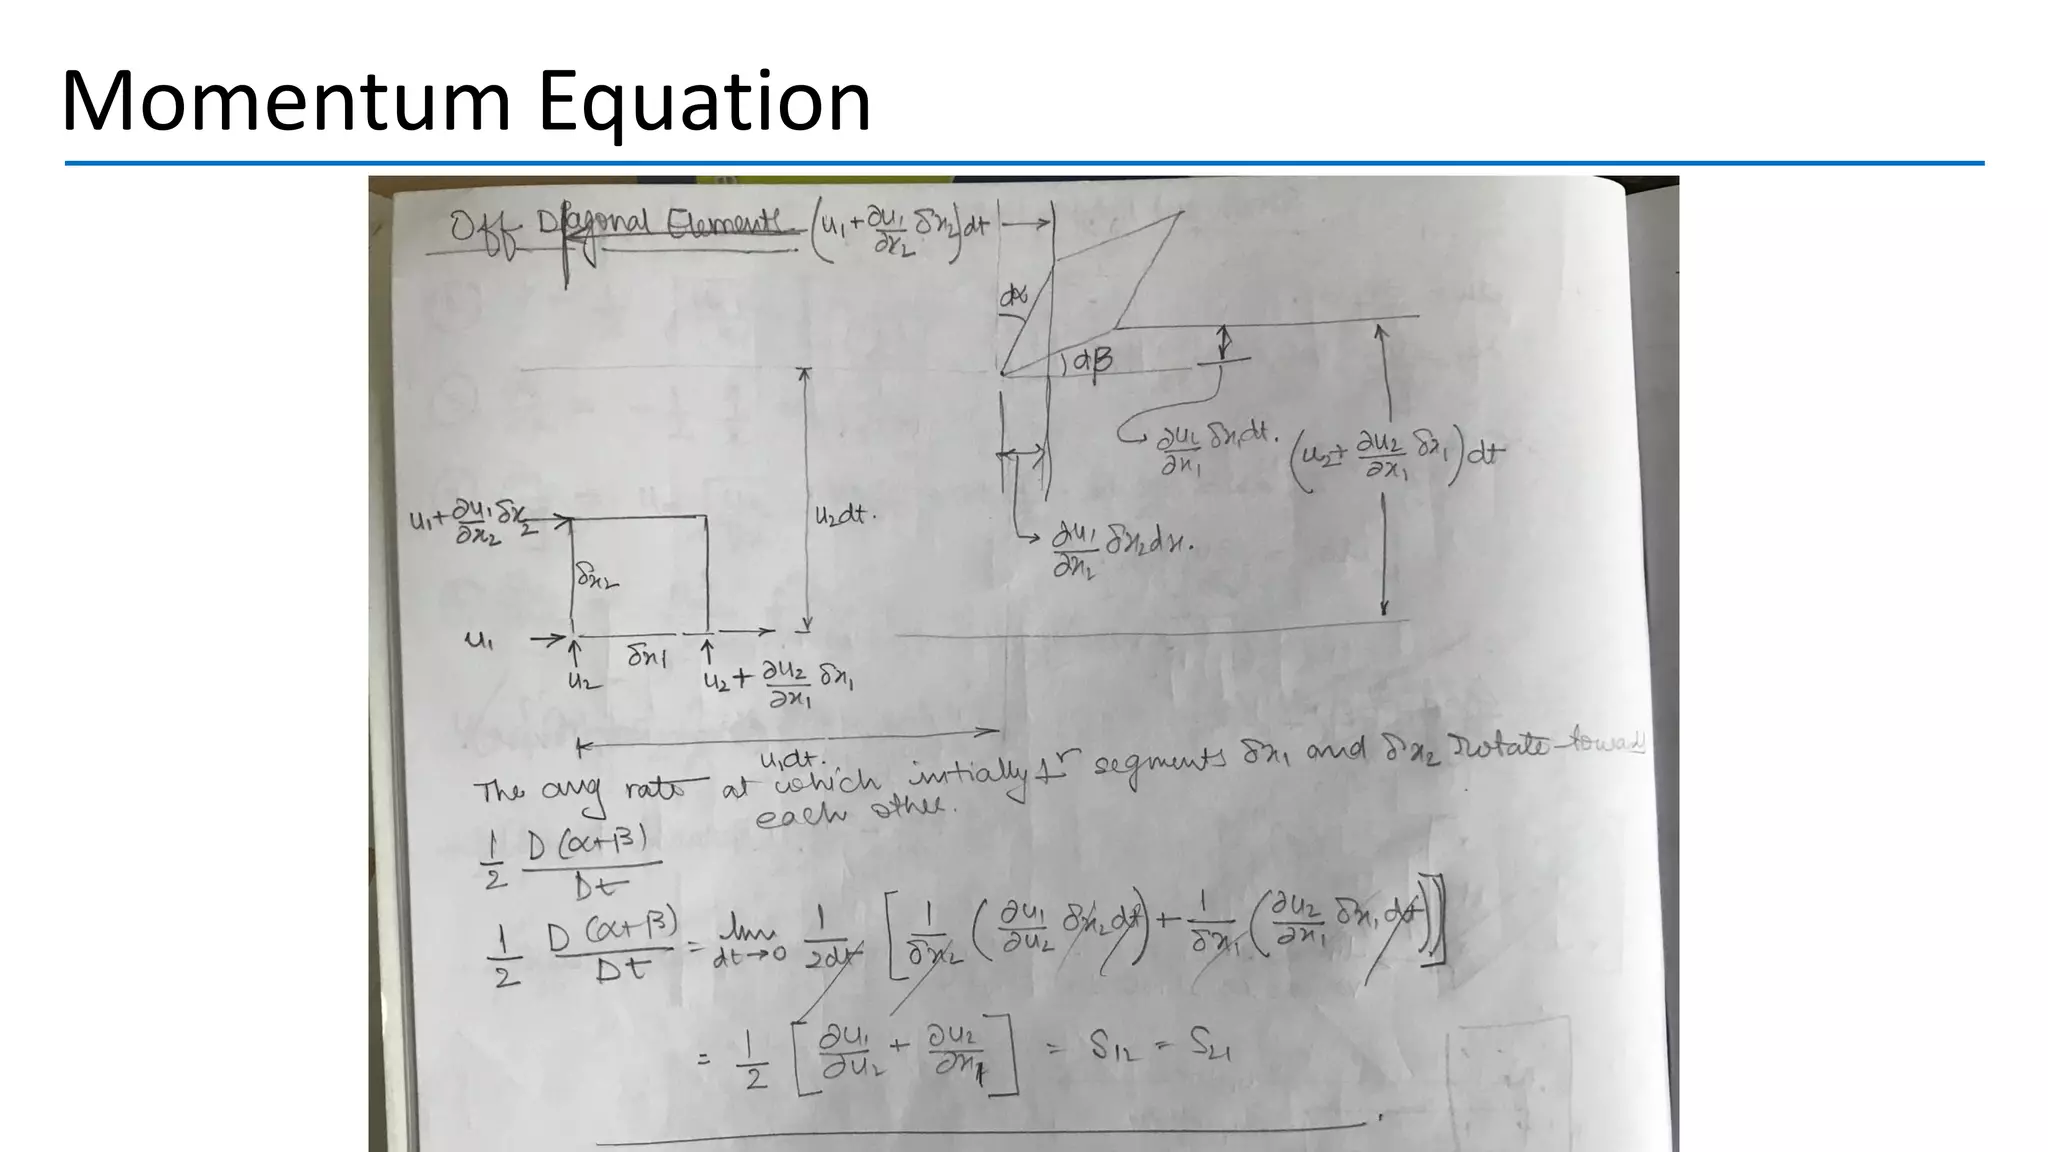 Momentum Equation
Off Diagonal Elements
(u₁+∂u₁/∂x₂ δx₂)dt
dα
dβ
∂u₂/∂x₁ δx₁dt.
(u₂+∂u₂/∂x₁ δx₁)dt
u₂dt.
u₁+∂u₁/∂x₂ δx₂
δx₂
∂u₁/∂x₂ δx₂dx.
u₁
δx₁
u₂
u₂+∂u₂/∂x₁ δx₁
u₁dt.
The avg rate at which initially ⊥r segments δx₁ and δx₂ rotate toward
each other.
1/2 D(α+β)/Dt
1/2 D(α+β)/Dt = lim dt→0 1/2dt [1/δx₂ (∂u₁/∂u₂ δx₂dt) + 1/δx₁ (∂u₂/∂x₁ δx₁dt)]
= 1/2 [∂u₁/∂u₂ + ∂u₂/∂x₁] = S₁₂ = S₂₁